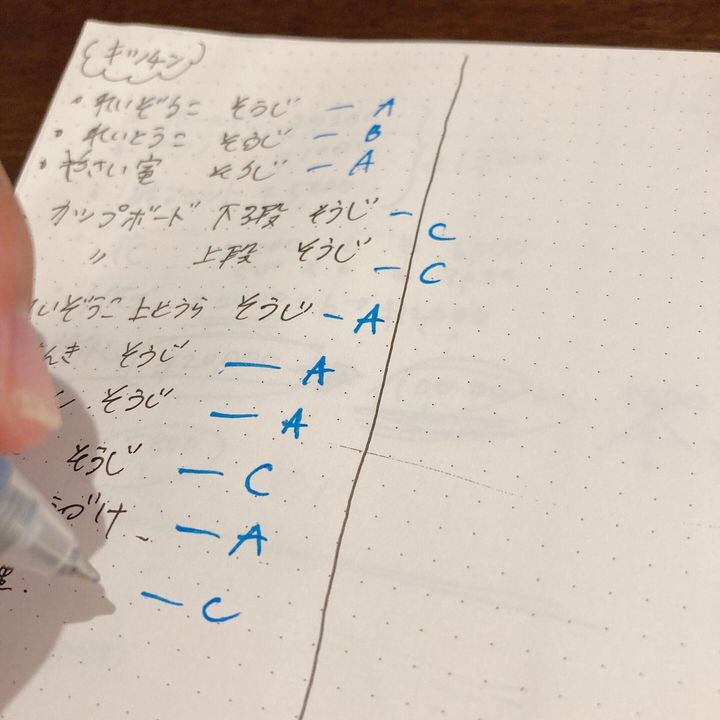 キッチン
・れいぞうこ そうじ ー A
・れいとうこ そうじ ー B
・やさい室 そうじ ー A
カップボード 下3段 そうじ ー C
〃 上段 そうじ ー C
いぞうこ上とうら そうじ ー A
んき そうじ ー A
ン そうじ ー A
そうじ ー C
ー A
ー C